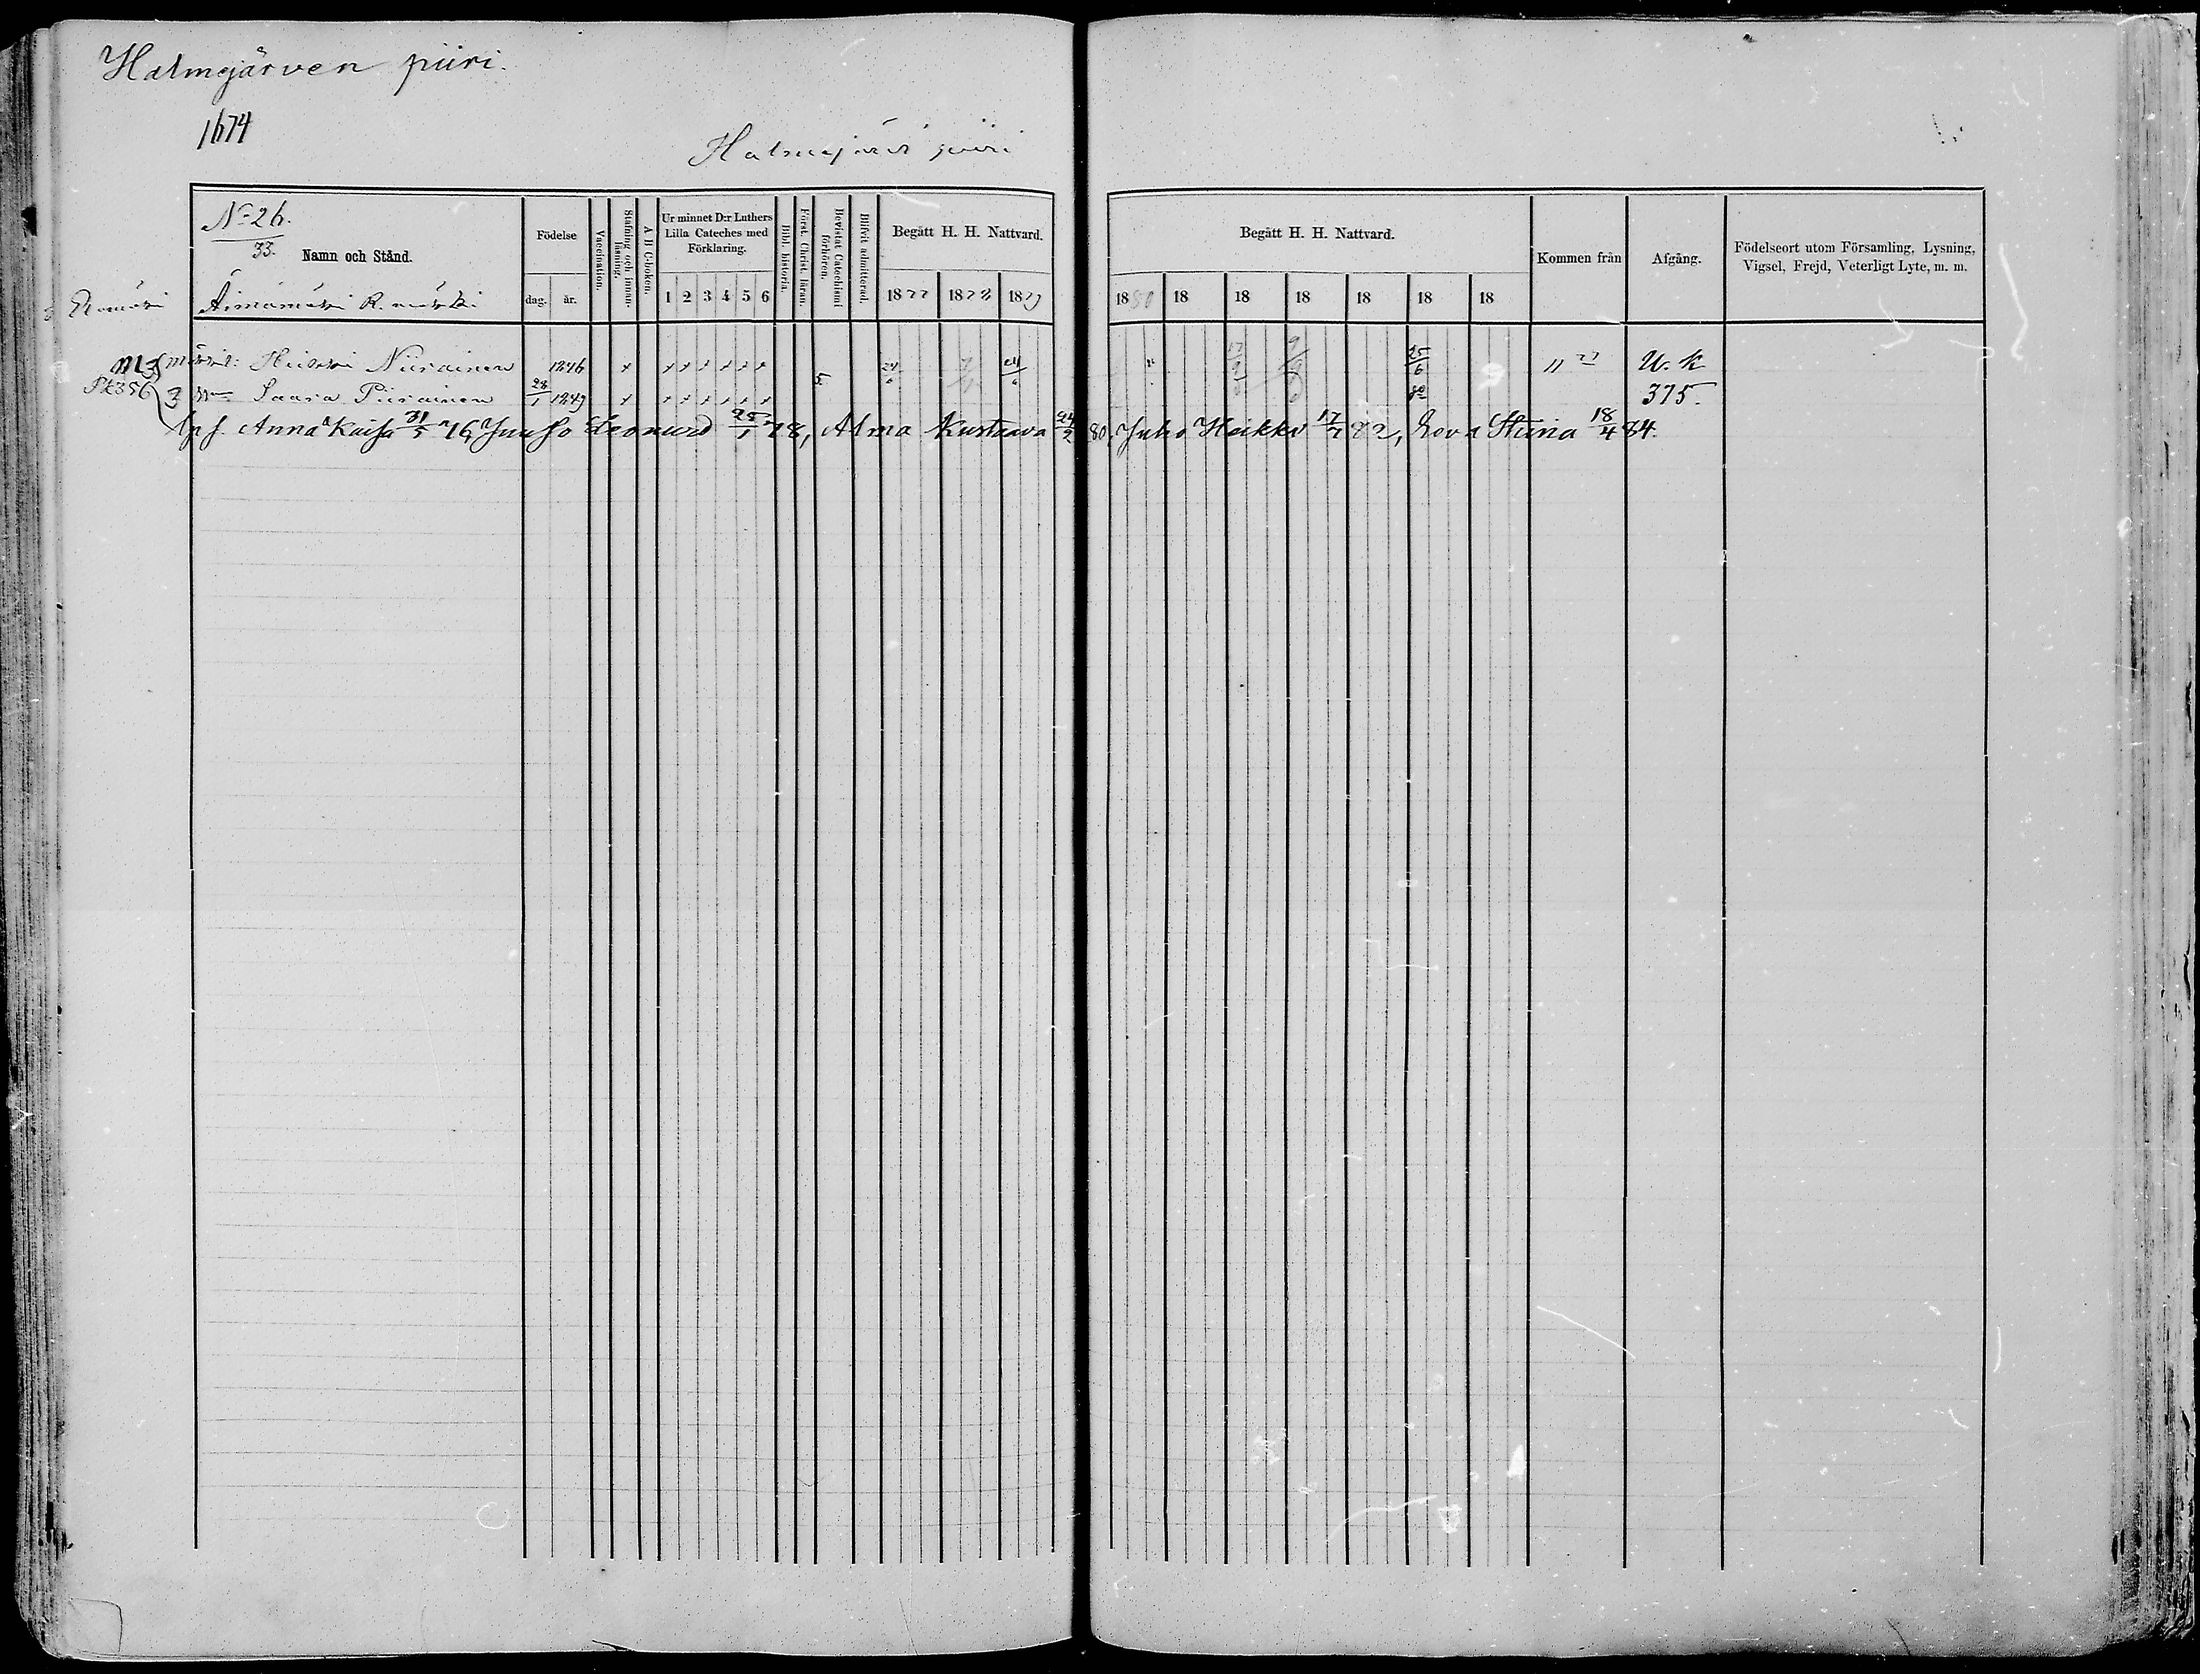 Halmejärven piiri.
1674
Halmejärvi piiri
N:o 26.
33.
Namn och Stånd.
Födelse
dag. år.
Vaccination.
Stafning och innanläsning.
A B C-boken.
Ur minnet D:r Luthers Lilla Cateches med Förklaring.
1 2 3 4 5 6
Bibl. historia.
Först. Christ. läran.
Bevistat Catechismi förhören.
Blifvit admitterad.
Begått H. H. Nattvard.
1877 1878 1879
Begått H. H. Nattvard.
1880 18 18 18 18 18 18
Kommen från
Afgång.
Födelseort utom Församling, Lysning, Vigsel, Frejd, Veterligt Lyte, m. m.
Heikki Niirainen 1846 + + + + + + + 24/6 24/6 17/9 25/6 U. K
Saara Piirainen 28/1 1849 + + + + + + + 375.
Anna Kaisa 31/5 76, Juuso Leonard 25/1 78, Alma Kustaava 24/2 80, Juho Heikki 17/7 82, Eeva Stiina 18/4 84.